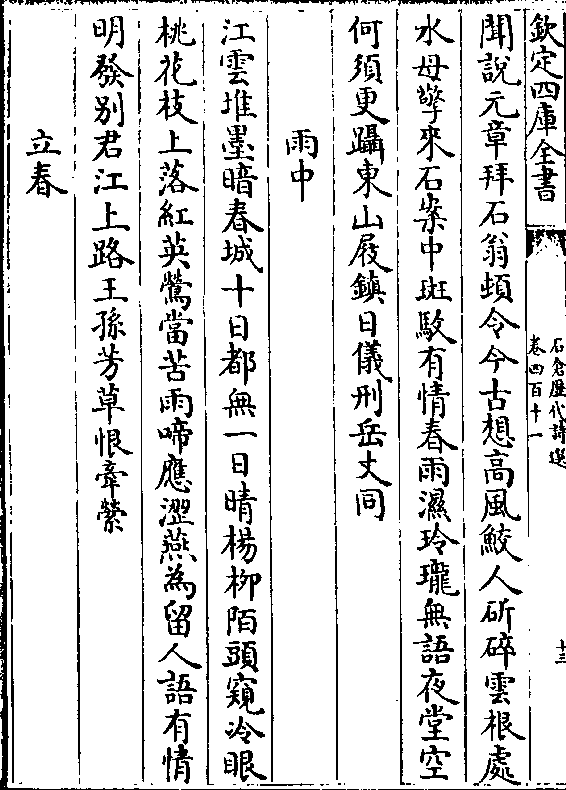 欽定四庫全書
石倉歷代詩選
卷四百十一
十三
聞說元章拜石翁頓令今古想高風鮫人斫碎雲根處
水母擎來石案中斑駮有情春雨濕玲瓏無語夜堂空
何須更躡東山屐鎮日儀刑岳丈同
雨中
江雲堆墨暗春城十日都無一日晴楊柳陌頭窺冷眼
桃花枝上落紅英鶯當苦雨啼應澀燕為留人語有情
明發别君江上路王孫芳草恨牽縈
立春